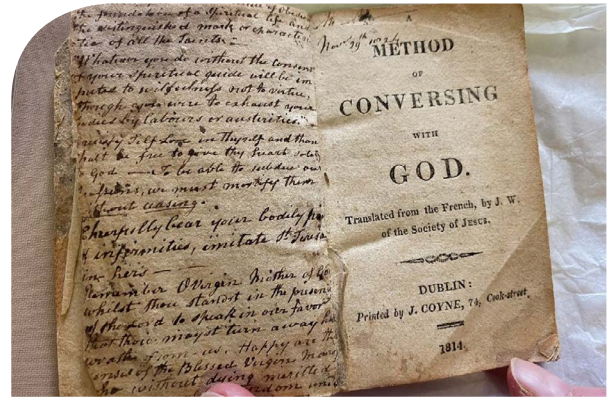 the foundation of a spiritual life and
the distinguished mark or character
tic of all the Saints.
Whatever you do without the consent
of your spiritual guide will be im
puted to wilfulness not to virtue,
though you were to exhaust your
bodies by labours or austerities.
crucify Self Love in thyself and thou
shalt be free to give thy heart solely
to god — To be able to subdue our
desires, we must mortify them
without ceasing.
Chearfully bear your bodily
& infirmities, imitate St Teresa
in hers —
Remember O Virgin Mother of
whilst thou standst in the presence
of the Lord to speak in our favor
that thou mayst turn away his
wrath from us. Happy are the
senses of the Blessed Virgin Mary
who without dying merited
A
METHOD
OF
CONVERSING
WITH
GOD.
Translated from the French, by J. W.
of the Society of JESUS.
DUBLIN:
Printed by J. COYNE, 74, Cook-street,
1814.